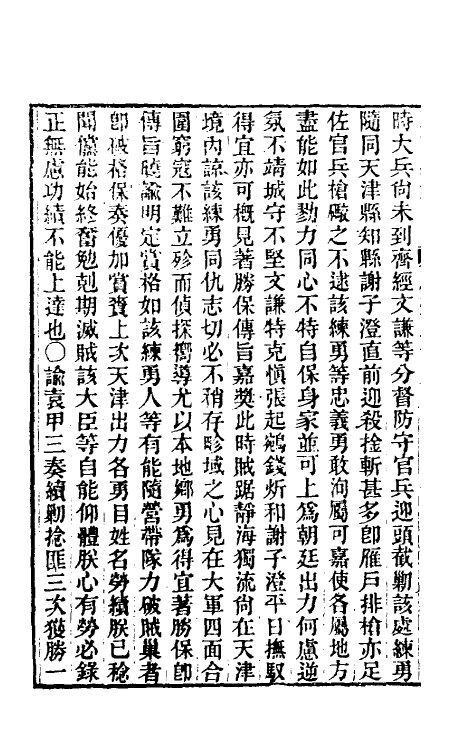 時大兵尙未到齊經文謙等分督防守官兵迎頭截勦該處練勇
隨同天津縣知縣謝子澄直前迎殺擒斬甚多卽雁戶排槍亦足
佐官兵槍礮之不逮該練勇等忠義勇敢洵屬可嘉使各屬地方
盡能如此勠力同心不特自保身家並可上爲朝廷出力何慮逆
氛不靖城守不堅文謙特克愼張起鵷錢炘和謝子澄平日撫馭
得宜亦可槪見著勝保傳旨嘉奬此時賊踞靜海獨流尙在天津
境內諒該練勇同仇志切必不稍存畛域之心見在大軍四面合
圍窮寇不難立殄而偵探嚮導尤以本地鄉勇爲得宜著勝保卽
傳旨曉諭明定賞格如該練勇人等有能隨營帶隊力破賊巢者
卽破格保奏優加賞賚上次天津出力各勇目姓名勞績朕已稔
聞儻能始終奮勉剋期滅賊該大臣等自能仰體朕心有勞必錄
正無慮功績不能上達也○諭袁甲三奏續勦捻匪三次獲勝一